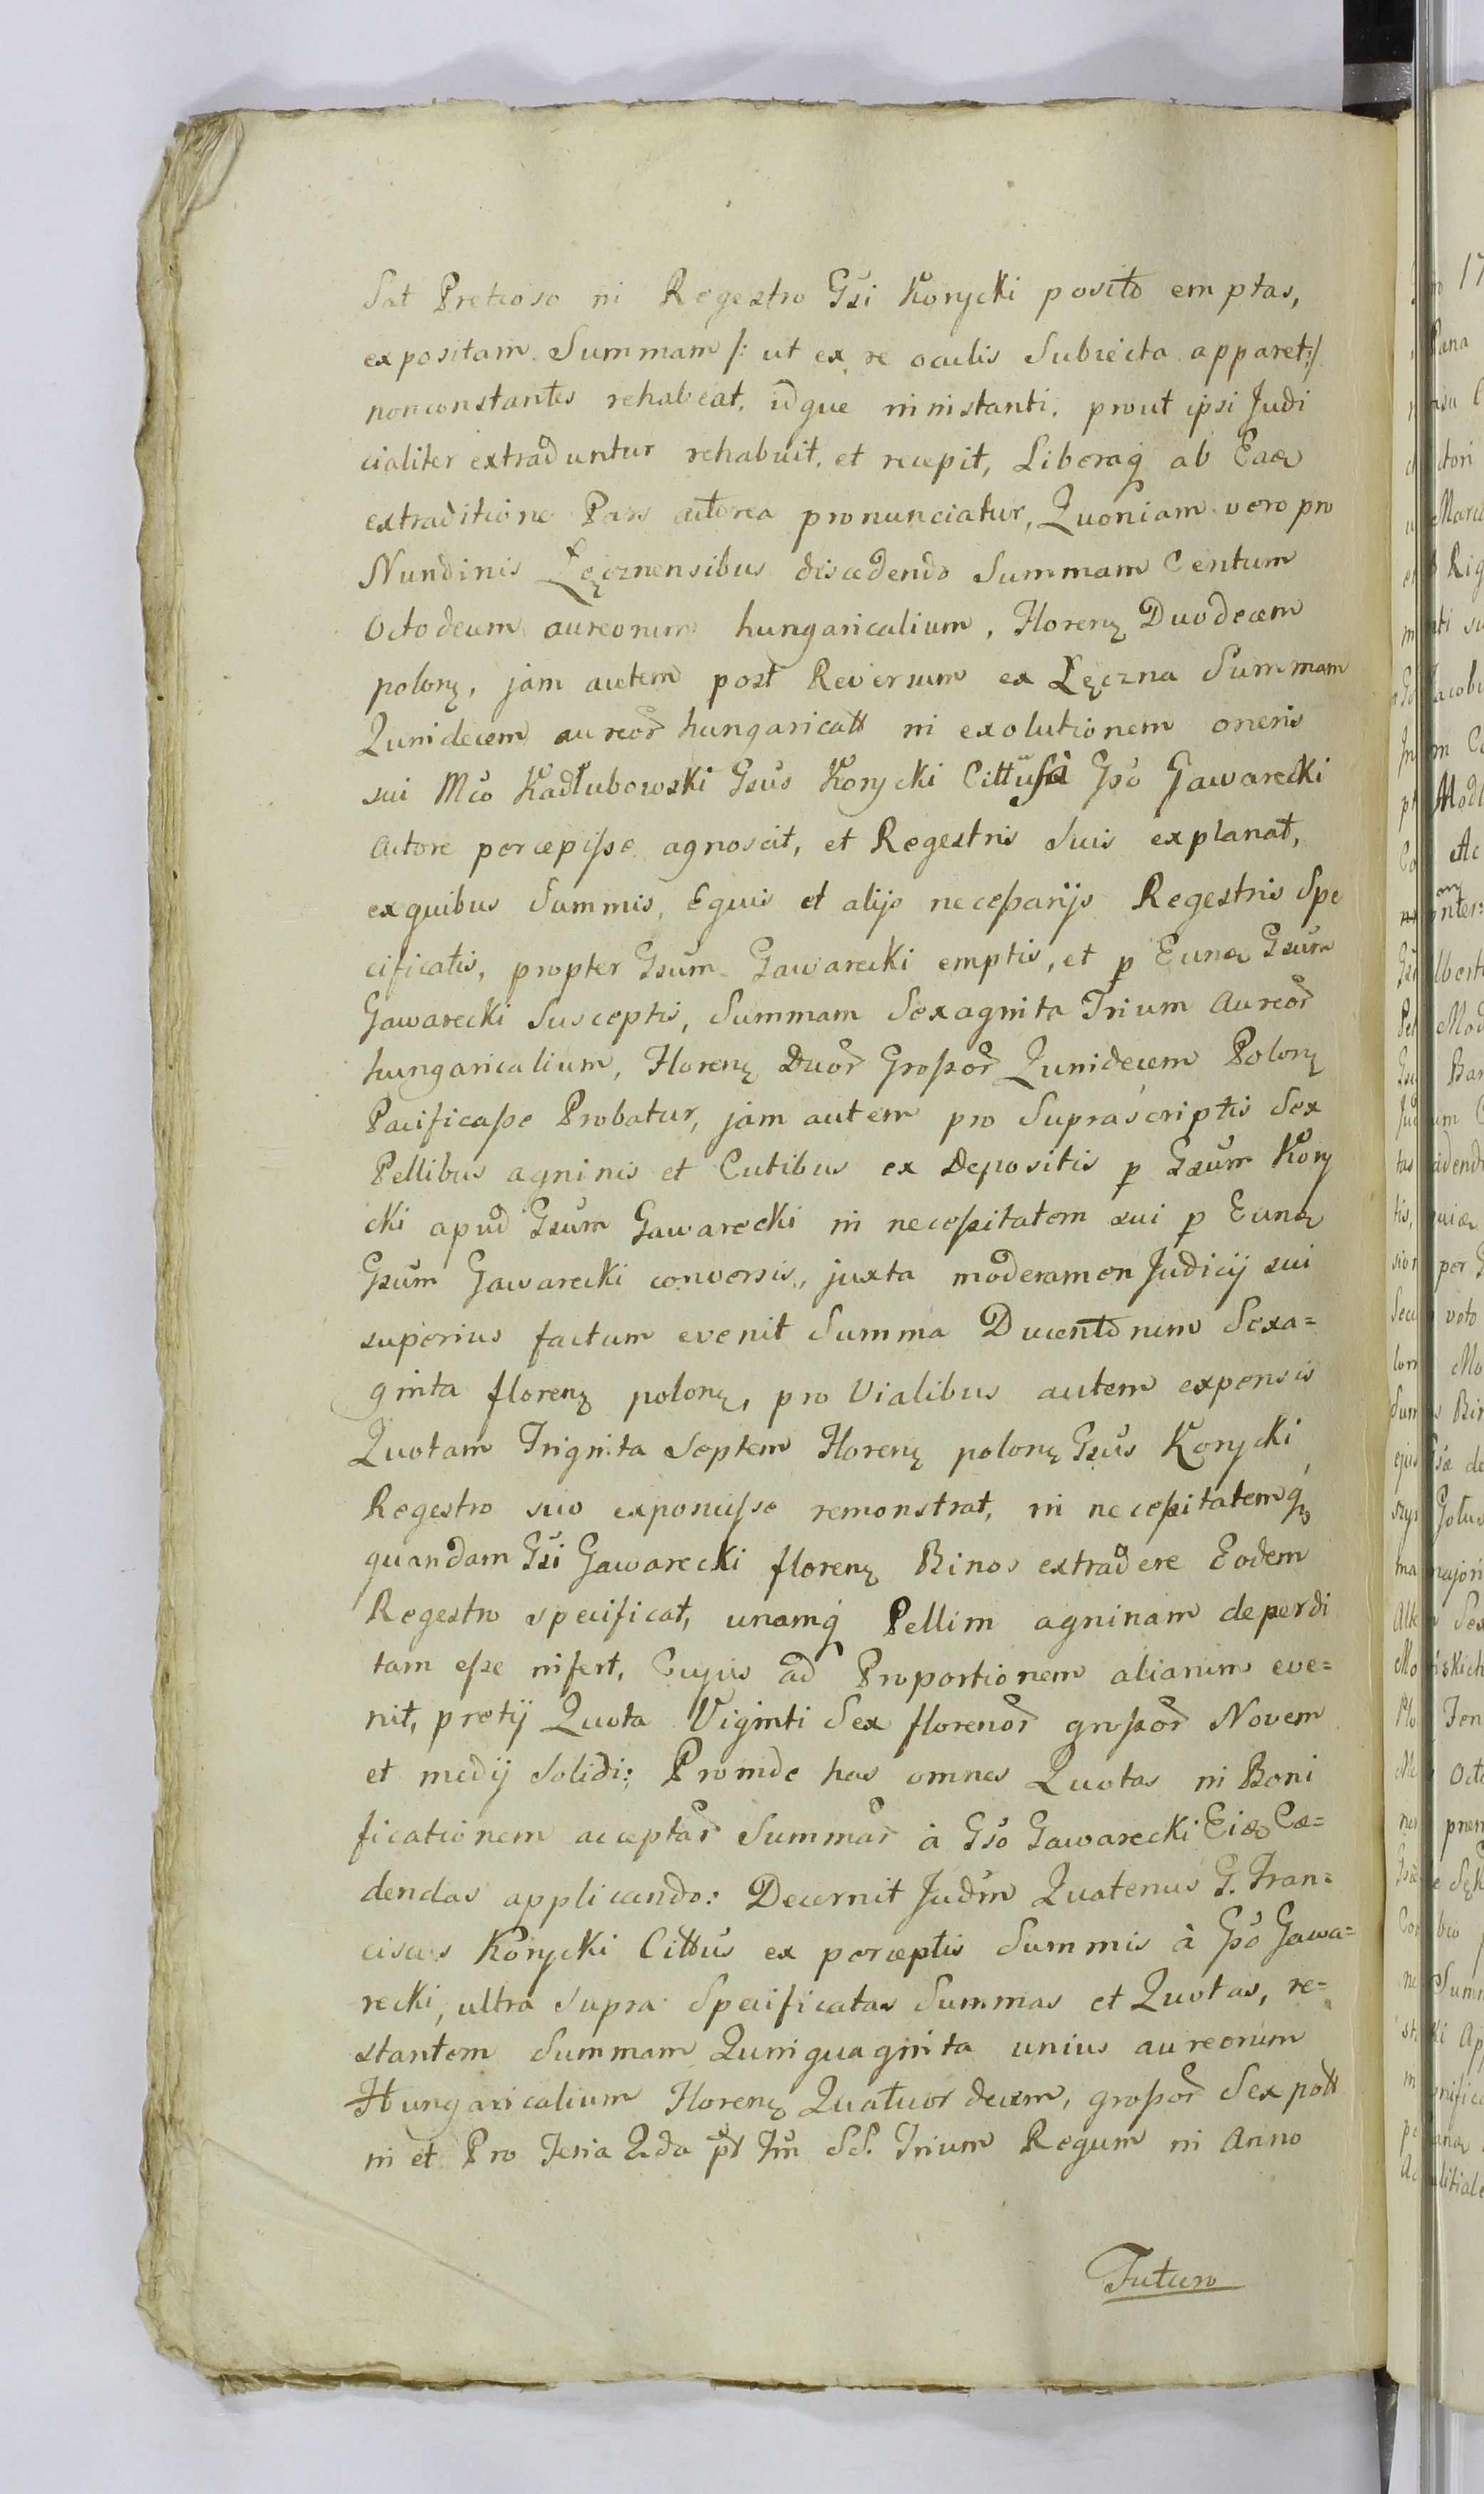 Sat Pretioso in Regestro Gsi Korycki posito emptas,
expositam Summam /: ut ex re oculis Subiecta apparet :/
nonconstantes rehabeat. idque in instanti, prout ipsi Judi
cialiter extraduntur rehabuit, et recepit, Liberaq ab Eaa
extraditione Pars actorea pronunciatur, Quoniam vero pro
Nundinis Łęcznensibus discedendo Summam Centum
Octodecem aureorum hungaricalium, Floren Duodecem
polon, jam autem post Reversum ex Łęczna Summam
Quindecem aureor hungaricall in exolutionem oneris
sui Mco Kadłubowski Gsus Korycki Citt Gso Gawarecki
Actore percepisse agnoscit, et Regestris Suis explanat,
exquibus Summis, Equis et alijs necessarijs Regestris Spe
cificatis, propter Gsum Gawarecki emptis, et p Euna Gsum
Gawarecki Susceptis, Summam Sexaginta Trium Aureor
hungaricalium, Floren Duor Grossor Quindecem Polon
Pacificasse Probatur, jam autem pro Suprascriptis Sex
Pellibus agninis et Cutibus ex Depositis p Gsum Kory
cki apud Gsum Gawarecki in necessitatem sui p Euna
Gsum Gawarecki conversis, juxta moderamen Judicij sui
superius factum evenit Summa Ducentorum Sexa=
ginta floren polon, pro Vialibus autem expensis
Quotam Triginta Septem Floren polon Gsus Korycki
Regestro suo exponisse remonstrat, in necessitatemq
quandam Gsi Gawarecki floren Binos extradere Eodem
Regestro specificat, unamq Pellim agninam deperdi
tam esse infert, Cujus ad Proportionem aliarum eve=
nit, pretij Quota Viginti Sex florenor grossor Novem
et medij Solidi: Proinde has omnes Quotas in Boni
ficationem acceptar Summar à Gso Gawarecki Eia Cæ=
dendas applicando: Decernit Judm Quatenus G. Fran=
ciscus Korycki Cittus ex perceptis Summis à Gso Gawa=
recki, ultra Supra Specificatas Summas et Quotas, re=
stantem Summam Quinquaginta unius aureorum
Hungaricalium Floren Quatuor decem, grossor Sex poll
in et Pro Feria 2da pt Fm SS. Trium Regum in Anno
Futuro